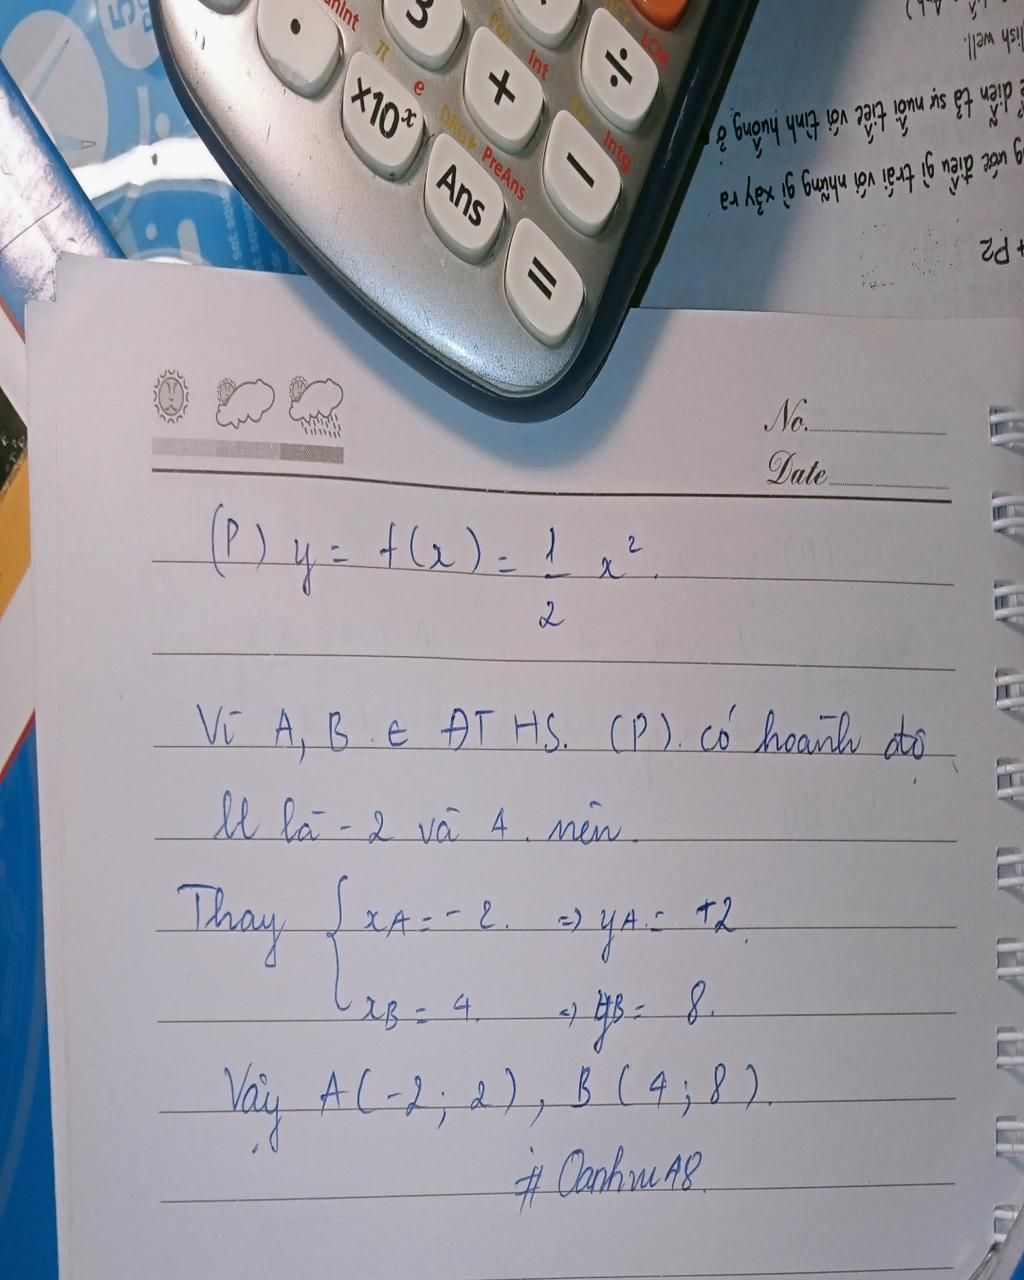 3
anInt
π
e
DRG▸
PreAns
Int
LCM
Intg
•
×10ˣ
+
÷
Ans
−
=
lish well.
ễ diễn tả sự nuối tiếc với tình huống ở
ng ước điều gì trái với những gì xảy ra
+ P2
No.
Date
(P) y = f(x) = 1/2 x².
Vì A, B ∈ ĐT HS. (P). có hoành độ
ll là - 2 và 4. nên.
Thay { xA = - 2. => yA = +2.
xB = 4. => yB = 8.
Vậy A(-2; 2), B(4; 8).
# OanhvuA8.